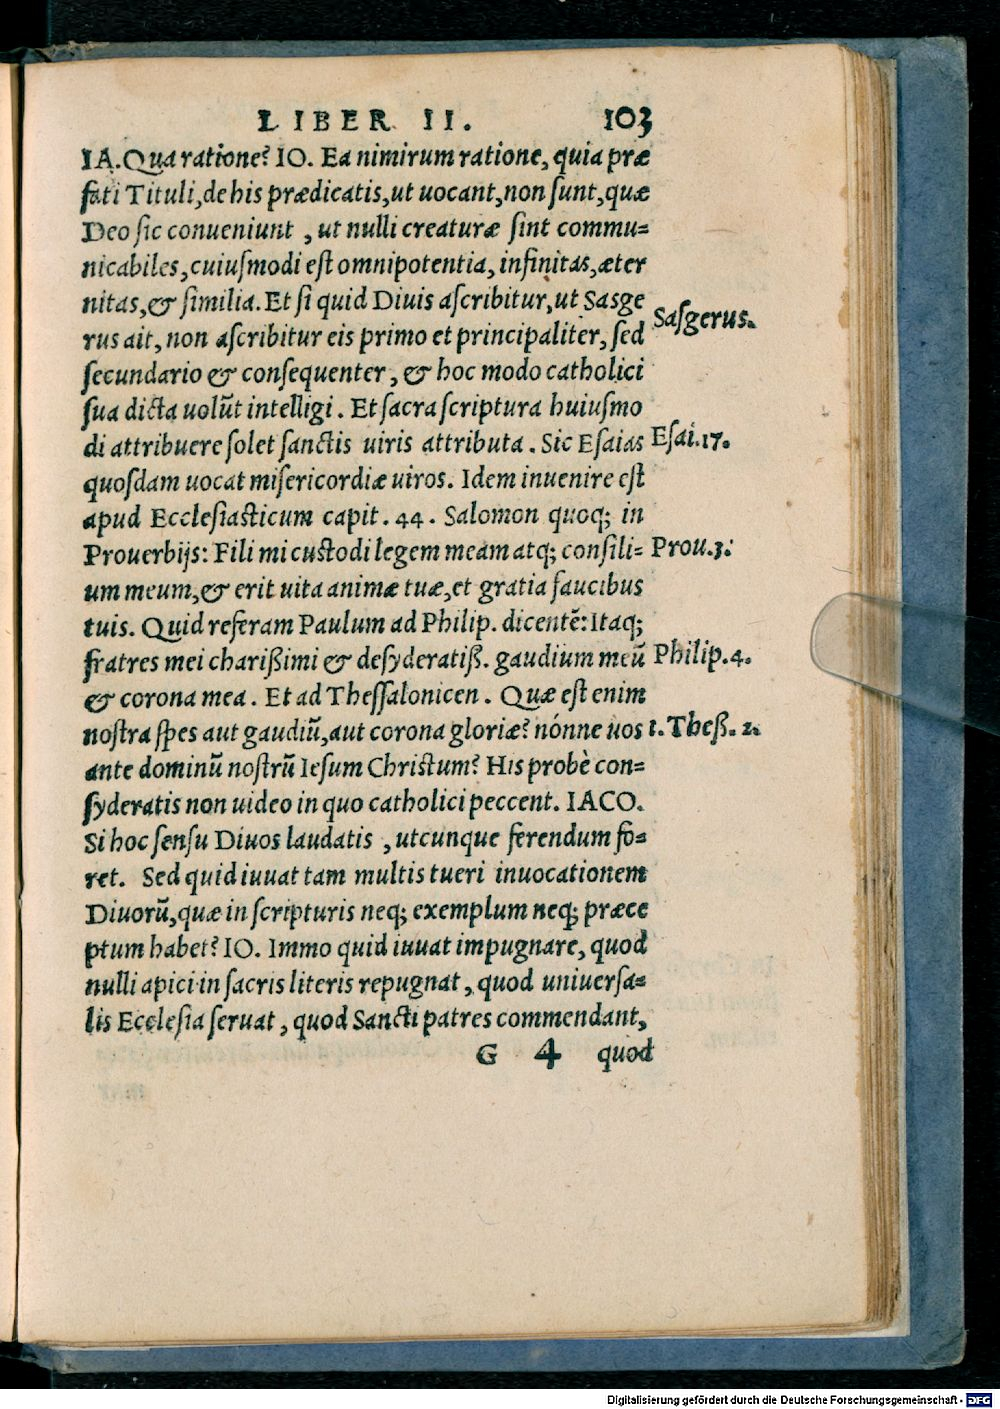 LIBER II. 103
IA. Qua ratione? IO. Ea nimirum ratione, quia præ
fati Tituli, de his prædicatis, ut uocant, non sunt, quæ
Deo sic conueniunt , ut nulli creaturæ sint commu=
nicabiles, cuiusmodi est omnipotentia, infinitas, æter
nitas, & similia. Et si quid Diuis ascribitur, ut Sasge
rus ait, non ascribitur eis primo et principaliter, sed
Sasgerus.
secundario & consequenter , & hoc modo catholici
sua dicta uolūt intelligi . Et sacra scriptura huiusmo
di attribuere solet sanctis uiris attributa . Sic Esaias
Esai.17.
quosdam uocat misericordiæ uiros. Idem inuenire est
apud Ecclesiasticum capit . 44 . Salomon quoq; in
Prouerbijs: Fili mi custodi legem meam atq; consili=
Prou.3:
um meum, & erit uita animæ tuæ, et gratia faucibus
tuis. Quid referam Paulum ad Philip. dicentē: Itaq;
fratres mei charißimi & desyderatiß. gaudium meū
Philip.4.
& corona mea . Et ad Thessalonicen . Quæ est enim
nostra spes aut gaudiū, aut corona gloriæ? nónne uos
1. Theß. 2.
ante dominū nostrū Iesum Christum? His probè con=
syderatis non uideo in quo catholici peccent. IACO.
Si hoc sensu Diuos laudatis , utcunque ferendum fo=
ret. Sed quid iuuat tam multis tueri inuocationem
Diuorū, quæ in scripturis neq; exemplum neq; præce
ptum habet? IO. Immo quid iuuat impugnare, quod
nulli apici in sacris literis repugnat , quod uniuersa=
lis Ecclesia seruat , quod Sancti patres commendant,
G 4 quod
Digitalisierung gefördert durch die Deutsche Forschungsgemeinschaft - DFG